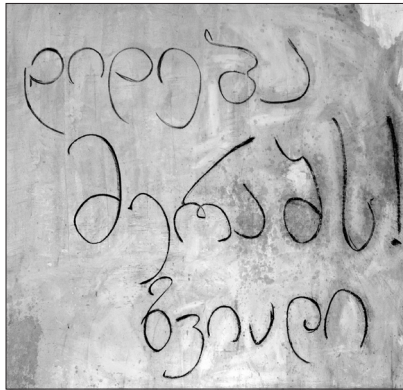 დიდება
მერაბს!
ზვიადი